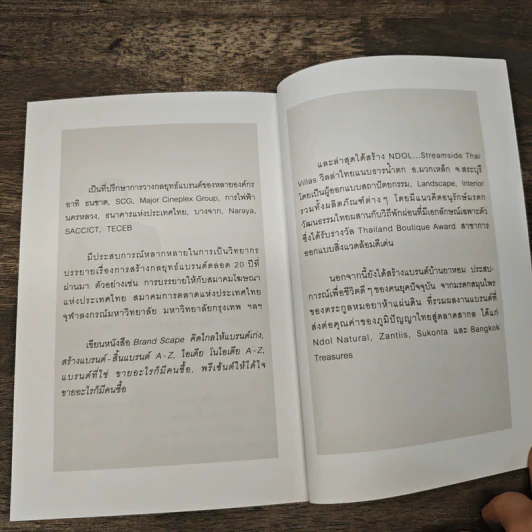 เป็นที่ปรึกษาการวางกลยุทธ์แบรนด์ของหลายองค์กร
อาทิ ธนชาต, SCG, Major Cineplex Group, การไฟฟ้า
นครหลวง, ธนาคารแห่งประเทศไทย, บางจาก, Naraya,
SACCICT, TECEB
มีประสบการณ์หลากหลายในการเป็นวิทยากร
บรรยายเรื่องการสร้างกลยุทธ์แบรนด์ตลอด 20 ปีที่
ผ่านมา ตัวอย่างเช่น การบรรยายให้กับสมาคมโฆษณา
แห่งประเทศไทย สมาคมการตลาดแห่งประเทศไทย
จุฬาลงกรณ์มหาวิทยาลัย มหาวิทยาลัยกรุงเทพ ฯลฯ
เขียนหนังสือ Brand Scape คิดไกลให้แบรนด์เก่ง,
สร้างแบรนด์-สิ้นแบรนด์ A-Z, ไอเดีย โนไอเดีย A-Z,
แบรนด์ที่ใช่ ขายอะไรก็มีคนซื้อ, พรีเซ้นต์ให้ได้ใจ
ขายอะไรก็มีคนซื้อ
และล่าสุดได้สร้าง NDOL...Streamside Thai
Villas วิลล่าไทยแนบธารน้ำตก อ.มวกเหล็ก จ.สระบุรี
โดยเป็นผู้ออกแบบสถาปัตยกรรม, Landscape, Interior
รวมทั้งผลิตภัณฑ์ต่างๆ โดยมีแนวคิดอนุรักษ์มรดก
วัฒนธรรมไทยผสานกับวิถีพักผ่อนที่มีเอกลักษณ์เฉพาะตัว
ซึ่งได้รับรางวัล Thailand Boutique Award สาขาการ
ออกแบบสิ่งแวดล้อมดีเด่น
นอกจากนี้ยังได้สร้างแบรนด์บ้านยาหอม ประสบ-
การณ์เพื่อชีวิตดีๆ ของคนยุคปัจจุบัน จากมรดกสมุนไพร
ของตระกูลหมอยาห้าแผ่นดิน ที่รวมผลงานแบรนด์ที่
ส่งต่อคุณค่าของภูมิปัญญาไทยสู่ตลาดสากล ได้แก่
Ndol Natural, Zantiis, Sukonta และ Bangkok
Treasures